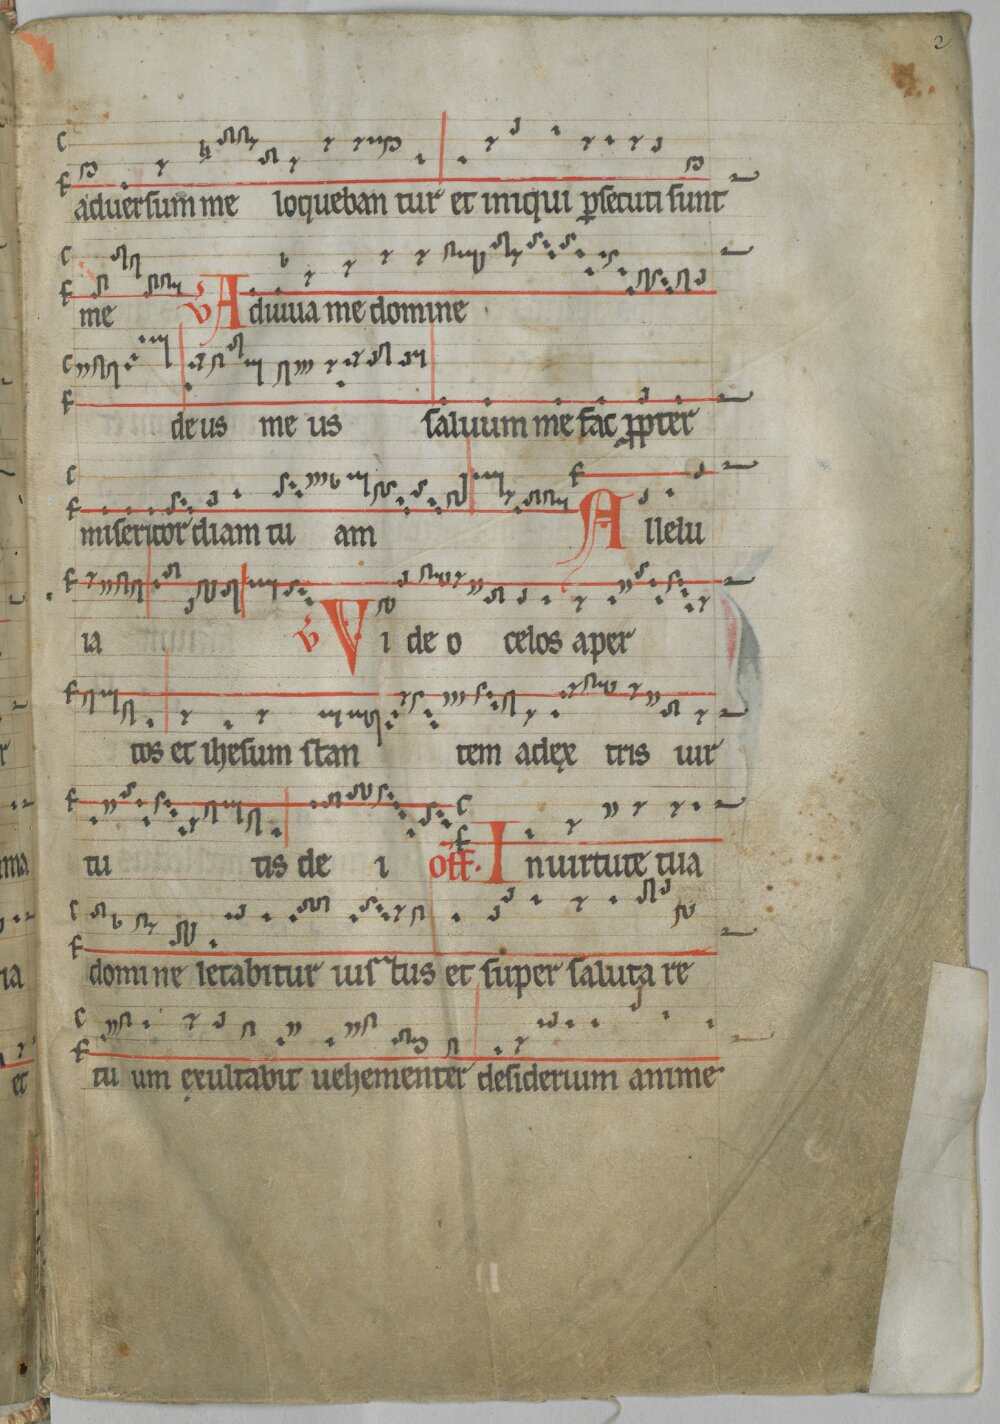 2
aduersum me loqueban tur et iniqui ꝑsecuti sunt
me ℣ Adiuua me domine
deus me us saluum me fac ꝓpter
misericor diam tu am Allelu
ia ℣ Vi de o celos aper
tos et ihesum stan tem adex tris uir
tu tis de i off. In uirtute tua
domi ne letabitur ius tus et super saluta re
tu um exultabit uehementer desiderium anime